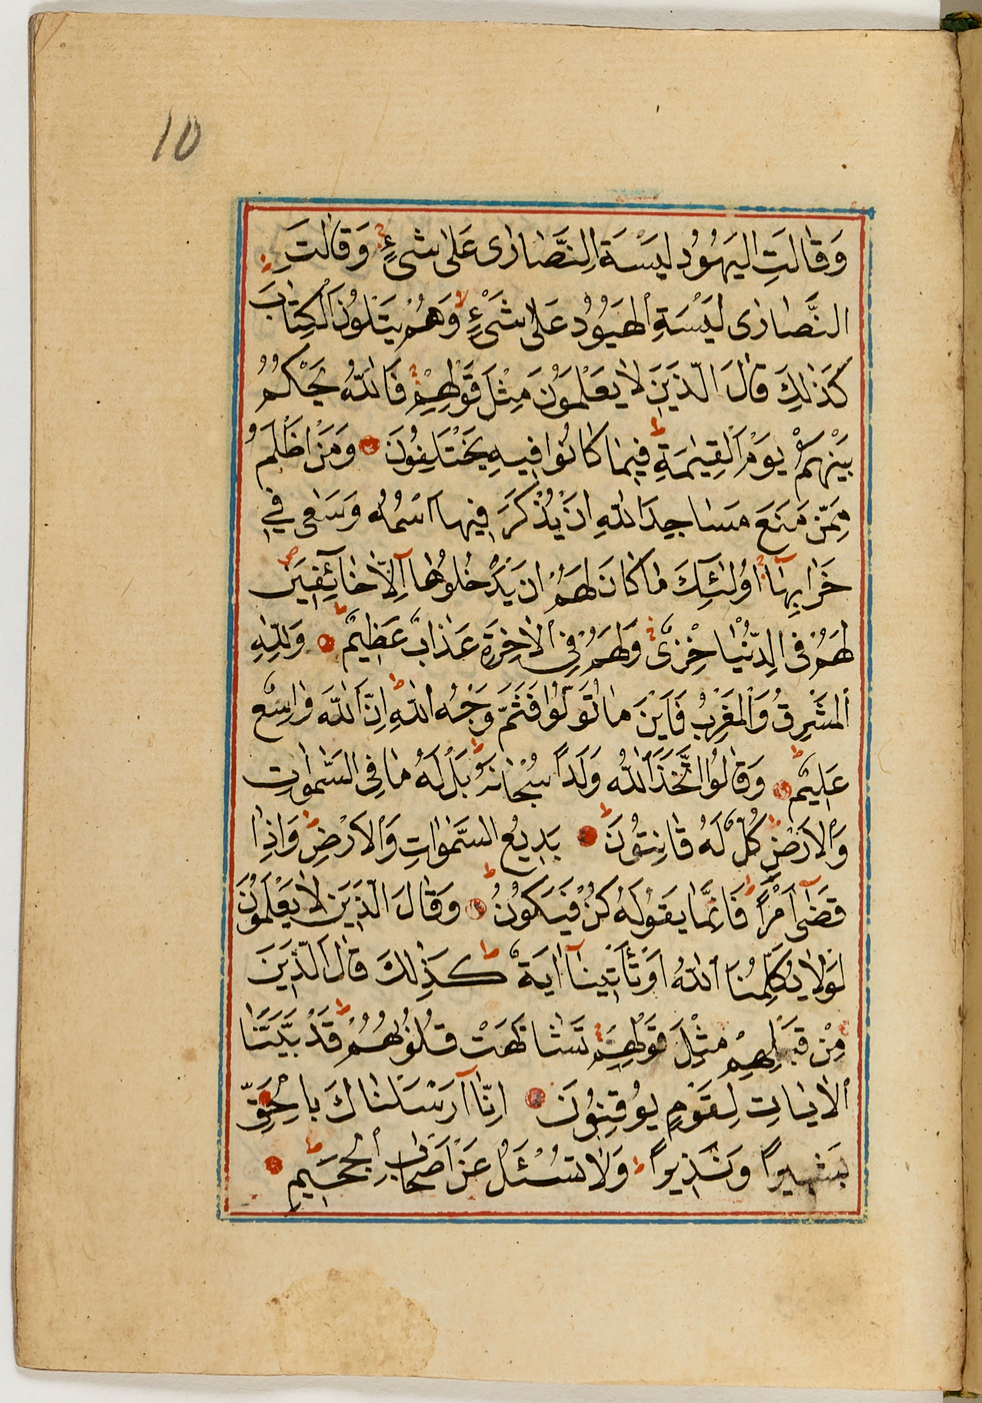 10
وَقَالَتِ الیَهُودُ لَیْسَةِ النَّصَارٰی عَلٰی شَیْءٍ وَقَالَتِ
النَّصَارٰی لَیْسَةِ الْهَیُودُ عَلٰی شَیْءٍ وَهُمْ یَتْلُونَ الْكِتَابَ
كَذٰلِكَ قَالَ الَّذِیَنَ لَا یَعْلَمُونَ مِثْلَ قَوْلِهِمْ فَاللّٰهُ یَحْكُمُ
بَیْنَهُمْ یَوْمَ الْقِیٰمَةِ فِیمَا كَانُوا فِیهِ یَخْتَلِفُونَ وَمَنْ اَظْلَمُ
مِمَّنْ مَنَعَ مَسَاجِدَ اللّٰهِ اَنْ یُذْكَرَ فِیهَا اسْمُهُ وَسَعٰی فِی
خَرَابِهَا اُولٰئِكَ مَا كَانَ لَهُمْ اَنْ یَدْخُلُوهَا اِلَّا خَائِفِینَ
لَهُمْ فِی الدُّنْیَا خِزْیٌ وَلَهُمْ فِی الْاٰخِرَةِ عَذَابٌ عَظِیمٌ وَلِلّٰهِ
الْمَشْرِقُ وَالْمَغْرِبُ فَاَیْنَ مَا تُوَلُّوا فَثَمَّ وَجْهُ اللّٰهِ اِنَّ اللّٰهَ وَاسِعٌ
عَلِیمٌ وَقَالُوا اتَّخَذَ اللّٰهُ وَلَداً سُبْحَانَهُ بَلْ لَهُ مَا فِی السَّمٰوَاتِ
وَالْاَرْضِ كُلٌّ لَهُ قَانِتُونَ بَدِیعُ السَّمٰوَاتِ وَالْاَرْضِ وَاِذَا
قَضٰی اَمْراً فَاِنَّمَا یَقُولُ لَهُ كُنْ فَیَكُونُ وَقَالَ الَّذِیَنَ لَا یَعْلَمُونَ
لَوْلَا یُكَلِّمُنَا اللّٰهُ اَوْ تَأْتِینَا اٰیَةٌ كَذٰلِكَ قَالَ الَّذِیَنَ
مِنْ قَبْلِهِمْ مِثْلَ قَوْلِهِمْ تَشَابَهَتْ قُلُوبُهُمْ قَدْ بَیَّنَّا
الْاٰیَاتِ لِقَوْمٍ یُوقِنُونَ اِنَّا اَرْسَلْنَاكَ بِالْحَقِّ
بَشِیراً وَنَذِیراً وَلَا تُسْئَلُ عَنْ اَصْحَابِ الْجَحِیمِ